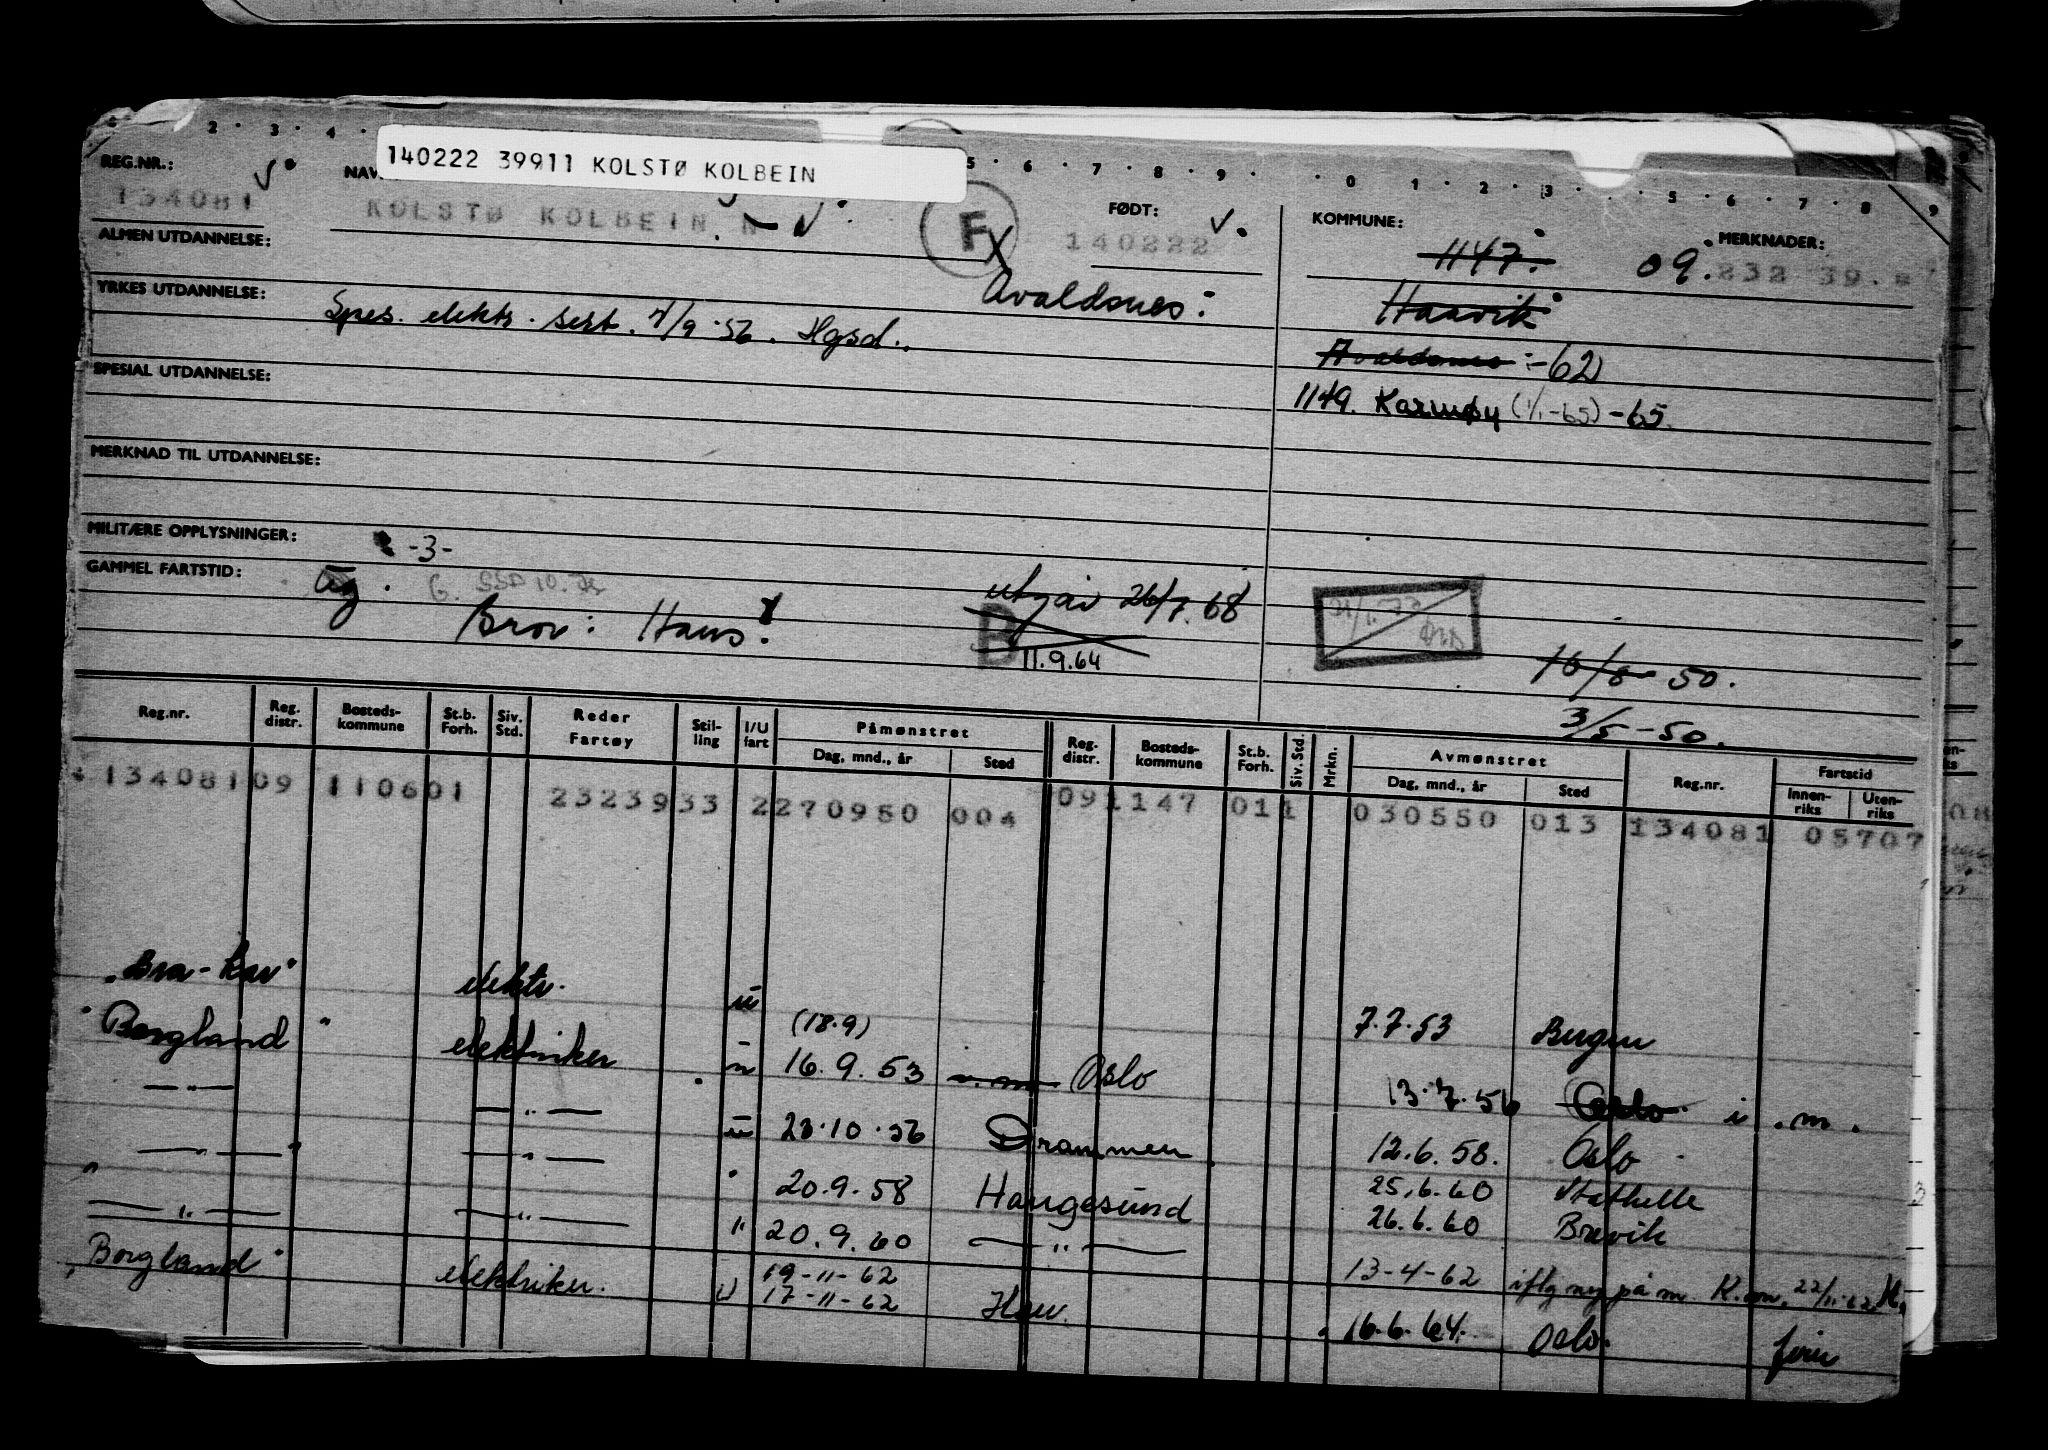 140222 39911 KOLSTØ KOLBEIN
REG.NR.: NAV
134081 KOLSTØ KOLBEIN F FØDT: 140222 KOMMUNE: 1147. 09. MERKNADER: 232 39.
ALMEN UTDANNELSE:
Avaldsnes: Haavik
YRKES UTDANNELSE: Spes. elektr. sert. 7/9-56. Hgsd..
Avaldsnes :-62)
1149. Karmøy (1/1-65) -65.
SPESIAL UTDANNELSE:
MERKNAD TIL UTDANNELSE:
MILITÆRE OPPLYSNINGER: -3-
GAMMEL FARTSTID:
Bror: Hans. utgår 26/7.68
B 11.9.64
50.
3/5-50.
Reg.nr. Reg. distr. Bosteds-kommune St.b. Forh. Siv. Std. Reder Fartøy Stil-ling I/U fart Påmønstret Dag, mnd., år Sted Reg. distr. Bosteds-kommune St.b. Forh. Siv. Std. Mrkn. Avmønstret Dag, mnd., år Sted Reg.nr. Fartstid Innen-riks Uten-riks
134081 09 1106 01 23239 33 2 270950 004 09 1147 01 1 030550 013 134081 05707
"Bra-Kar" elektr. u 7.7.53 Bergen
(18.9)
"Borgland" elektriker u 16.9.53 Oslo 13.7.56 Oslo i.m.
— " — — " — u 23.10.56 Drammen 12.6.58. Oslo
— " — — " — " 20.9.58 Haugesund 25.6.60 Stathelle
26.6.60 Brevik
— " — — " — " 20.9.60 — " — 13-4-62 iflg ny på m. 22/11-62
19-11-62
"Borgland" elektriker. u 17-11-62 Hau. 16.6.64. Oslo. ferie